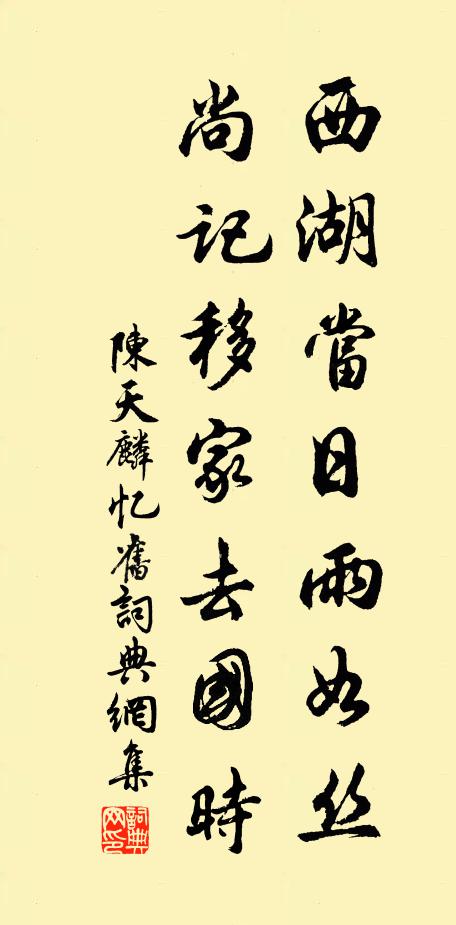 西湖當日雨如丝
尚记移家去國時
陳天麟忆舊詞典網集
詞典
网印